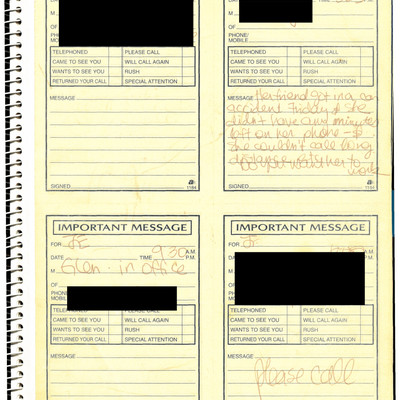 M
OF
PHONE/
MOBILE
TELEPHONED PLEASE CALL
CAME TO SEE YOU WILL CALL AGAIN
WANTS TO SEE YOU RUSH
RETURNED YOUR CALL SPECIAL ATTENTION
MESSAGE
SIGNED 1184
M
OF
PHONE/
MOBILE
TELEPHONED PLEASE CALL
CAME TO SEE YOU WILL CALL AGAIN
WANTS TO SEE YOU RUSH
RETURNED YOUR CALL SPECIAL ATTENTION
MESSAGE Her friend got in a car
accident Friday & she
didn't have any minutes
left on her phone - &
she couldn't call long
distance
Do you want her to
work
SIGNED 1184
IMPORTANT MESSAGE
FOR JE
DATE TIME 930 A.M.
P.M.
M Glen - in office
OF
PHONE/
MOBILE
TELEPHONED PLEASE CALL
CAME TO SEE YOU WILL CALL AGAIN
WANTS TO SEE YOU RUSH
RETURNED YOUR CALL SPECIAL ATTENTION
MESSAGE
IMPORTANT MESSAGE
FOR JE
DATE A.M.
P.M.
M
OF
PHONE/
MOBILE
TELEPHONED PLEASE CALL
CAME TO SEE YOU WILL CALL AGAIN
WANTS TO SEE YOU RUSH
RETURNED YOUR CALL SPECIAL ATTENTION
MESSAGE
please call